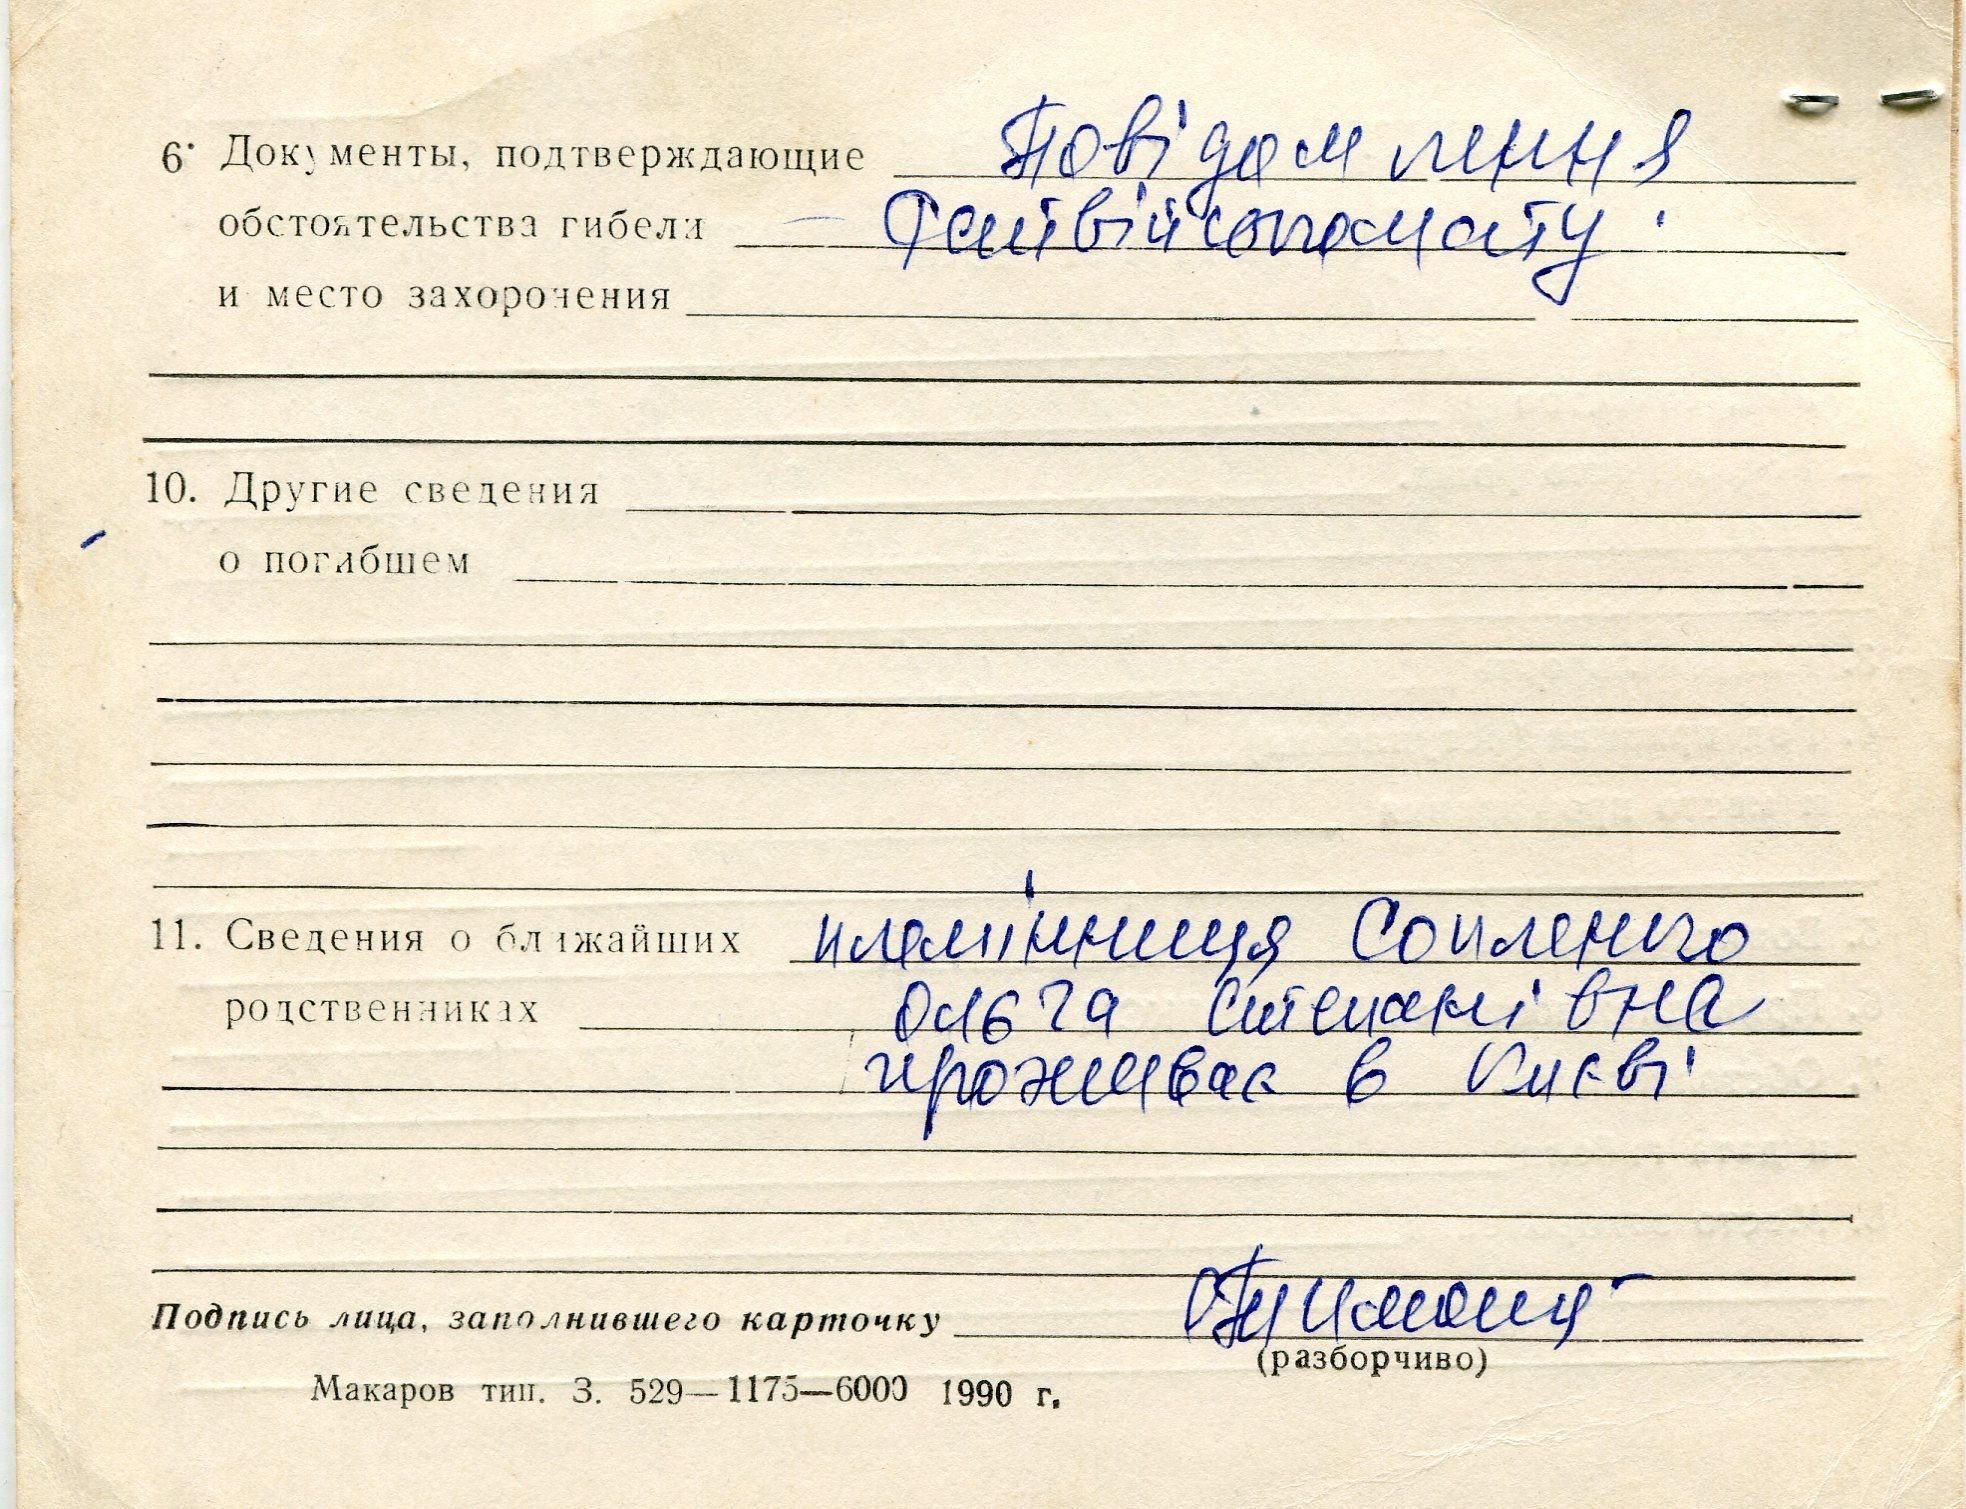 6. Документы, подтверждающие Повідомлення
обстоятельства гибели - Райвійськомату.
и место захоронения
10. Другие сведения
о погибшем
11. Сведения о ближайших племінниця Сопленко
родственниках Ольга Степанівна
проживає в Києві
Подпись лица, заполнившего карточку
(разборчиво)
Макаров тип. З. 529—1175—6000 1990 г.